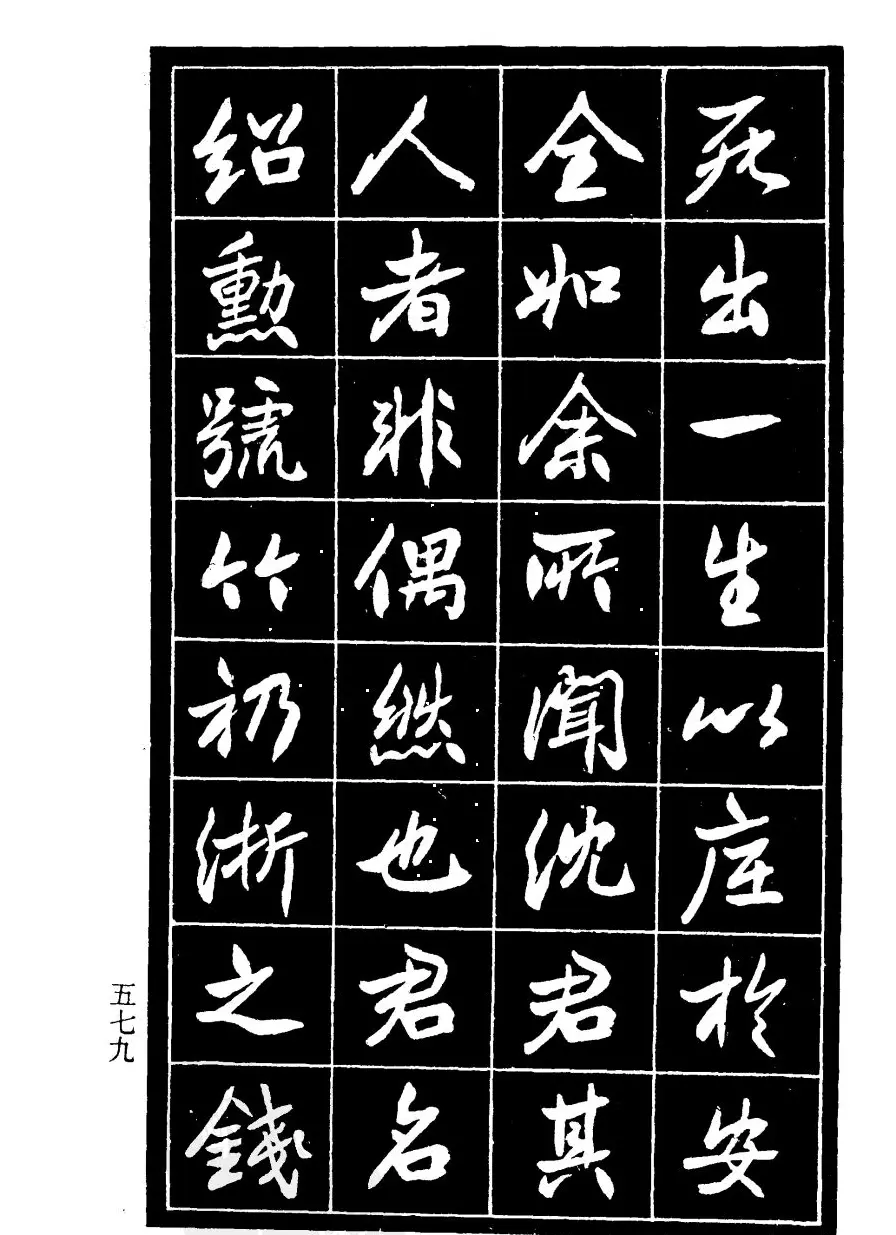 死出一生以庶於安
全如余所聞沈君其
人者非偶然也君名
紹勳號竹礽浙之錢
五七九